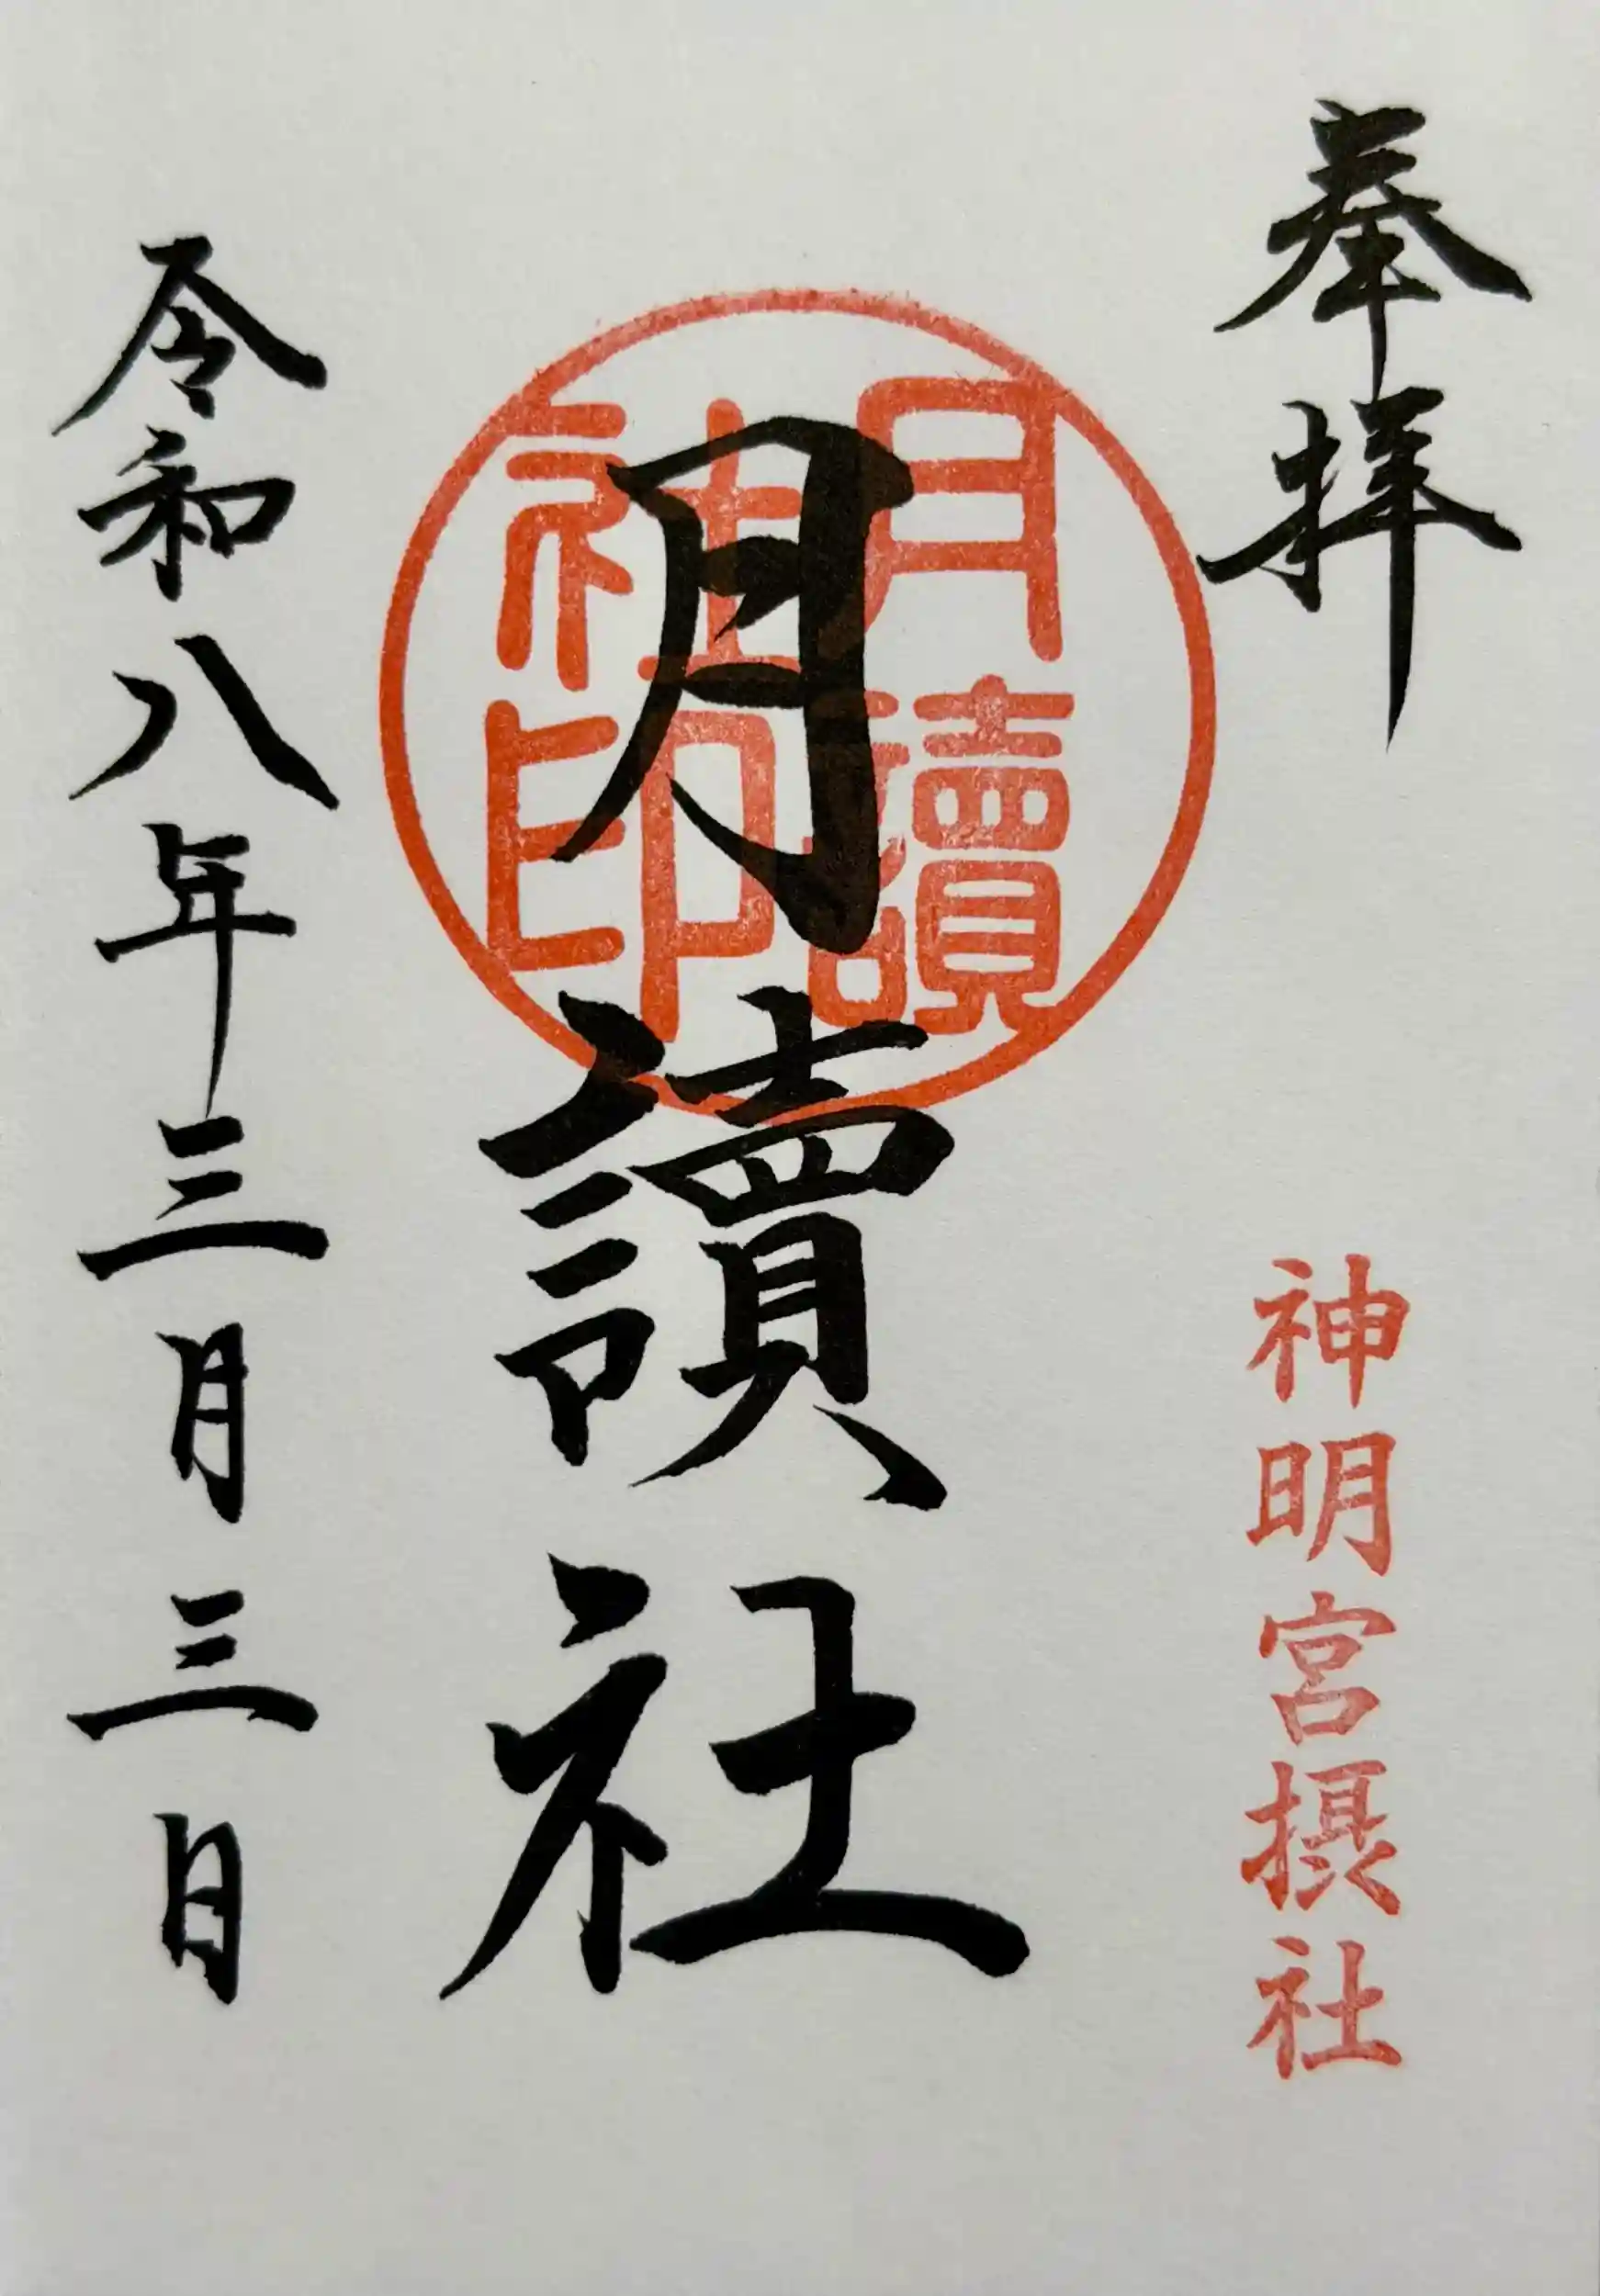 奉拝
神明宮摂社
月讀社
月讀社印
令和八年三月三日